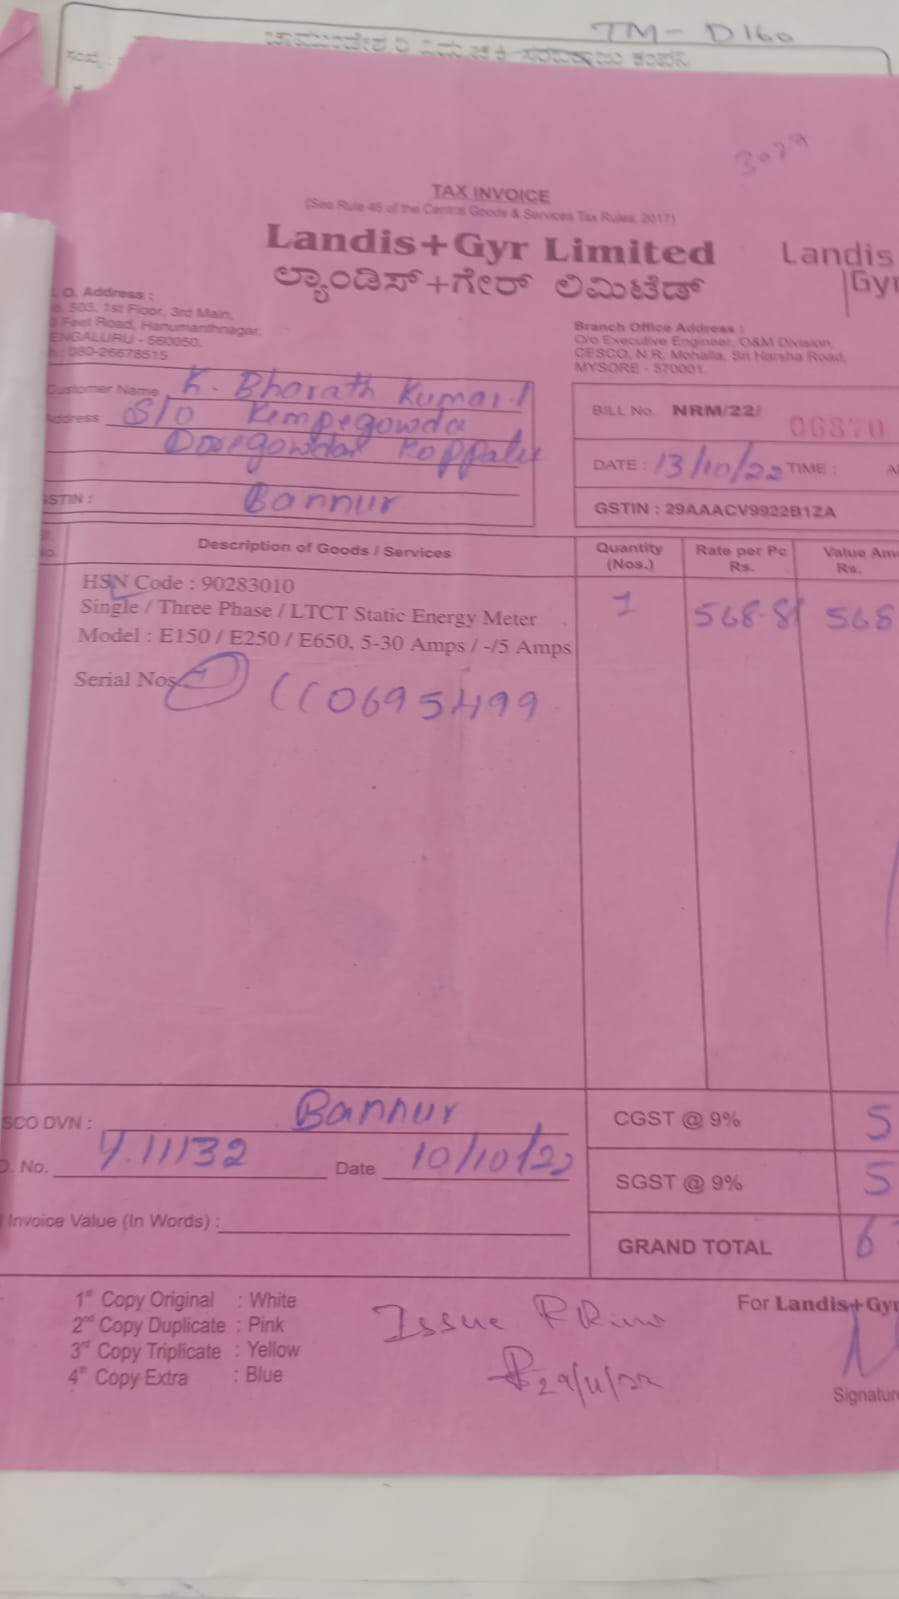 TM- D160
3079
TAX INVOICE
(See Rule 46 of the Central Goods & Services Tax Rules, 2017)
Landis+Gyr Limited
Landis
Gyr
ಲ್ಯಾಂಡಿಸ್+ಗೇರ್ ಲಿಮಿಟೆಡ್
O. Address :
503, 1st Floor, 3rd Main,
Feet Road, Hanumanthnagar,
ENGALURU - 560050.
: 080-26678515
Branch Office Address :
C/o Executive Engineer, O&M Division,
CESCO, N.R. Mohalla, Sri Harsha Road,
MYSORE - 570001.
Customer Name K. Bharath Kumar.
Address S/O Kempegowda
Doregowdan Koppalu
Bannur
STIN :
BILL No. NRM/22/ 06870
DATE : 13/10/22 TIME : A
GSTIN : 29AAACV9922B1ZA
Description of Goods / Services
Quantity (Nos.)
Rate per Pc Rs.
Value Am Rs.
HSN Code : 90283010
Single / Three Phase / LTCT Static Energy Meter
Model : E150 / E250 / E650, 5-30 Amps / -/5 Amps
1 568-81 568
Serial Nos. 110695499
SCO DVN : Bannur
No. Y.11132 Date 10/10/22
Invoice Value (In Words) :
CGST @ 9% 5
SGST @ 9% 5
GRAND TOTAL 6
1st Copy Original : White
2nd Copy Duplicate : Pink
3rd Copy Triplicate : Yellow
4th Copy Extra : Blue
Issue RR
29/11/22
For Landis+Gyr
Signatur